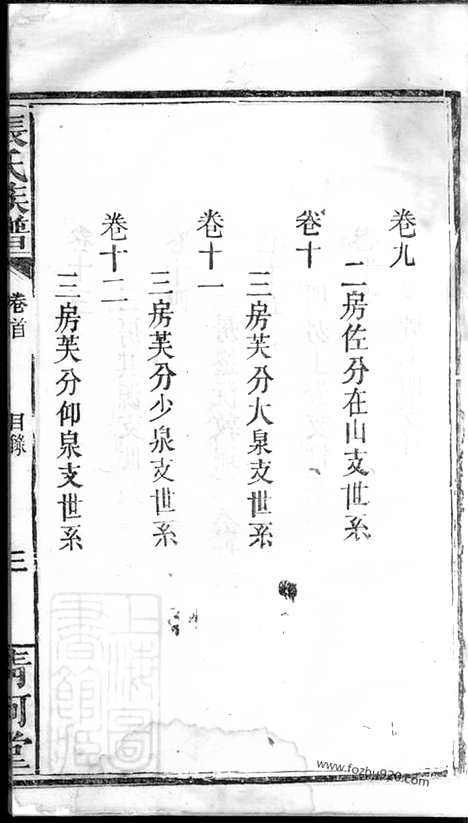 卷九
二房佐分在山支世系
卷十
三房芙分大泉支世系
卷十一
三房芙分少泉支世系
卷十二
三房芙分仰泉支世系
張氏族譜
卷首
目錄
三
清河堂
上海圖書館藏
www.fozhu920.com